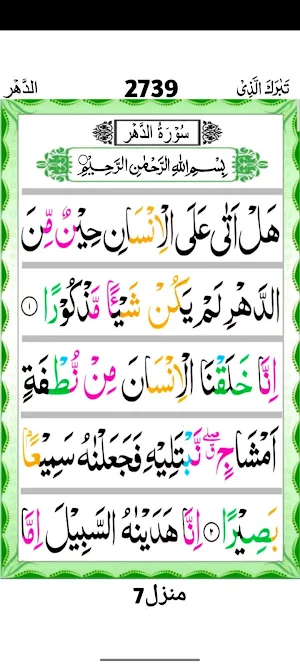 الدَّهْر 2739 تَبٰرَكَ الَّذِیْ
سُوْرَةُ الدَّهْرِ
بِسْمِ اللّٰهِ الرَّحْمٰنِ الرَّحِیْمِ
هَلْ اَتٰى عَلَى الْاِنْسَانِ حِیْنٌ مِّنَ
الدَّهْرِ لَمْ یَكُنْ شَیْـًٔا مَّذْكُوْرًا ۝۱
اِنَّا خَلَقْنَا الْاِنْسَانَ مِنْ نُّطْفَةٍ
اَمْشَاجٍ ۖۗ نَّبْتَلِیْهِ فَجَعَلْنٰهُ سَمِیْعًۢا
بَصِیْرًا ۝۲ اِنَّا هَدَیْنٰهُ السَّبِیْلَ اِمَّا
منزل7